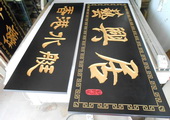 香港水艇
藝興居